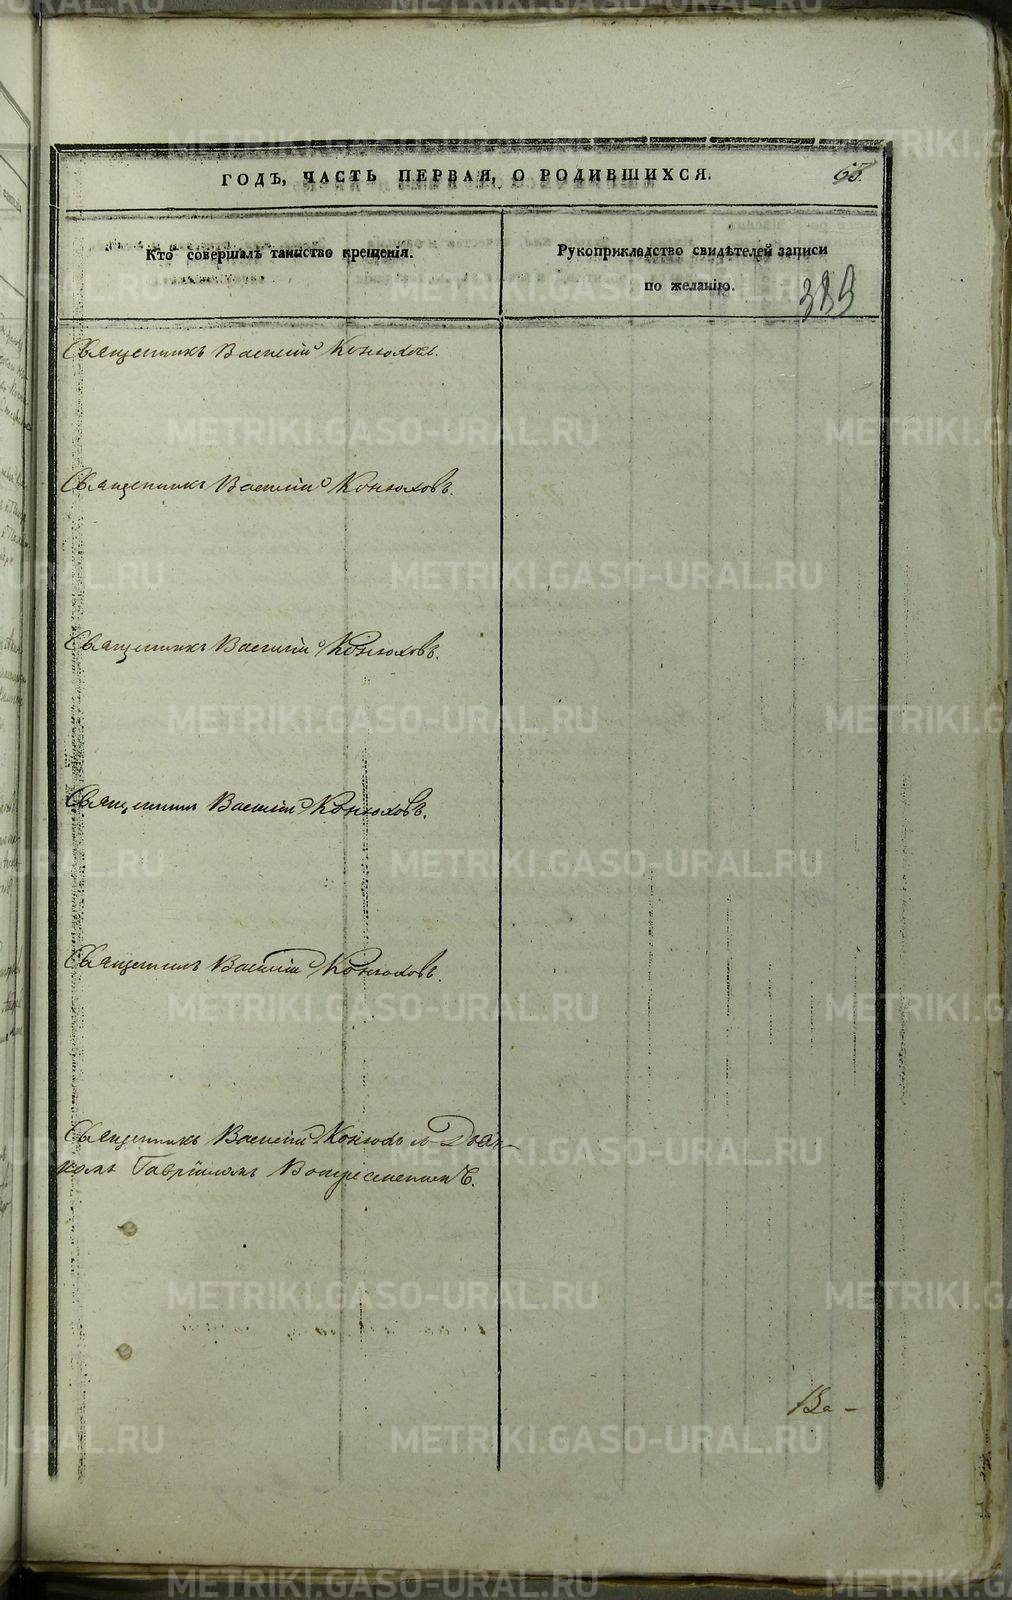 ГОДЪ, ЧАСТЬ ПЕРВАЯ, О РОДИВШИХСЯ.
65.
Кто совершалъ таинство крещенія.
Рукоприкладство свидѣтелей записи
по желанію.
389
Священникъ Василій Конюховъ.
Священникъ Василій Конюховъ.
Священникъ Василій Конюховъ.
Священникъ Василій Конюховъ.
Священникъ Василій Конюховъ.
Священникъ Василій Конюховъ
комъ Гавріиломъ
Ва-
METRIKI.GASO-URAL.RU